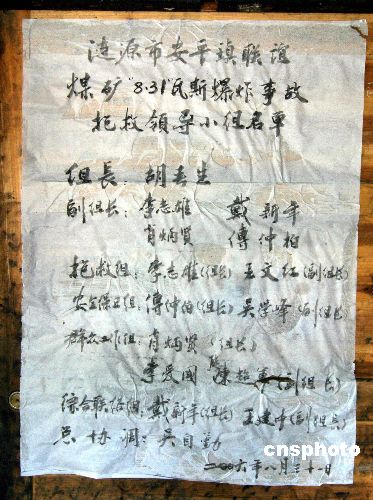 涟源市安平镇联谊
煤矿"8·31"瓦斯爆炸事故
抢救领导小组名单
组長：胡吉生
副组长：李志雄 戴新年
肖炳贤 傅仲柏
抢救组：李志雄(组长)王文红(副组长)
安全保卫组：傅仲伯(组长)吴学峰(副组长)
群众工作组：肖炳贤(组长)
李爱國 陳超軍(副组长)
综合联络组：戴新年(组长)王建中(副组長)
总协调：吴自勤
二00六年八月三十一日
cnsphoto